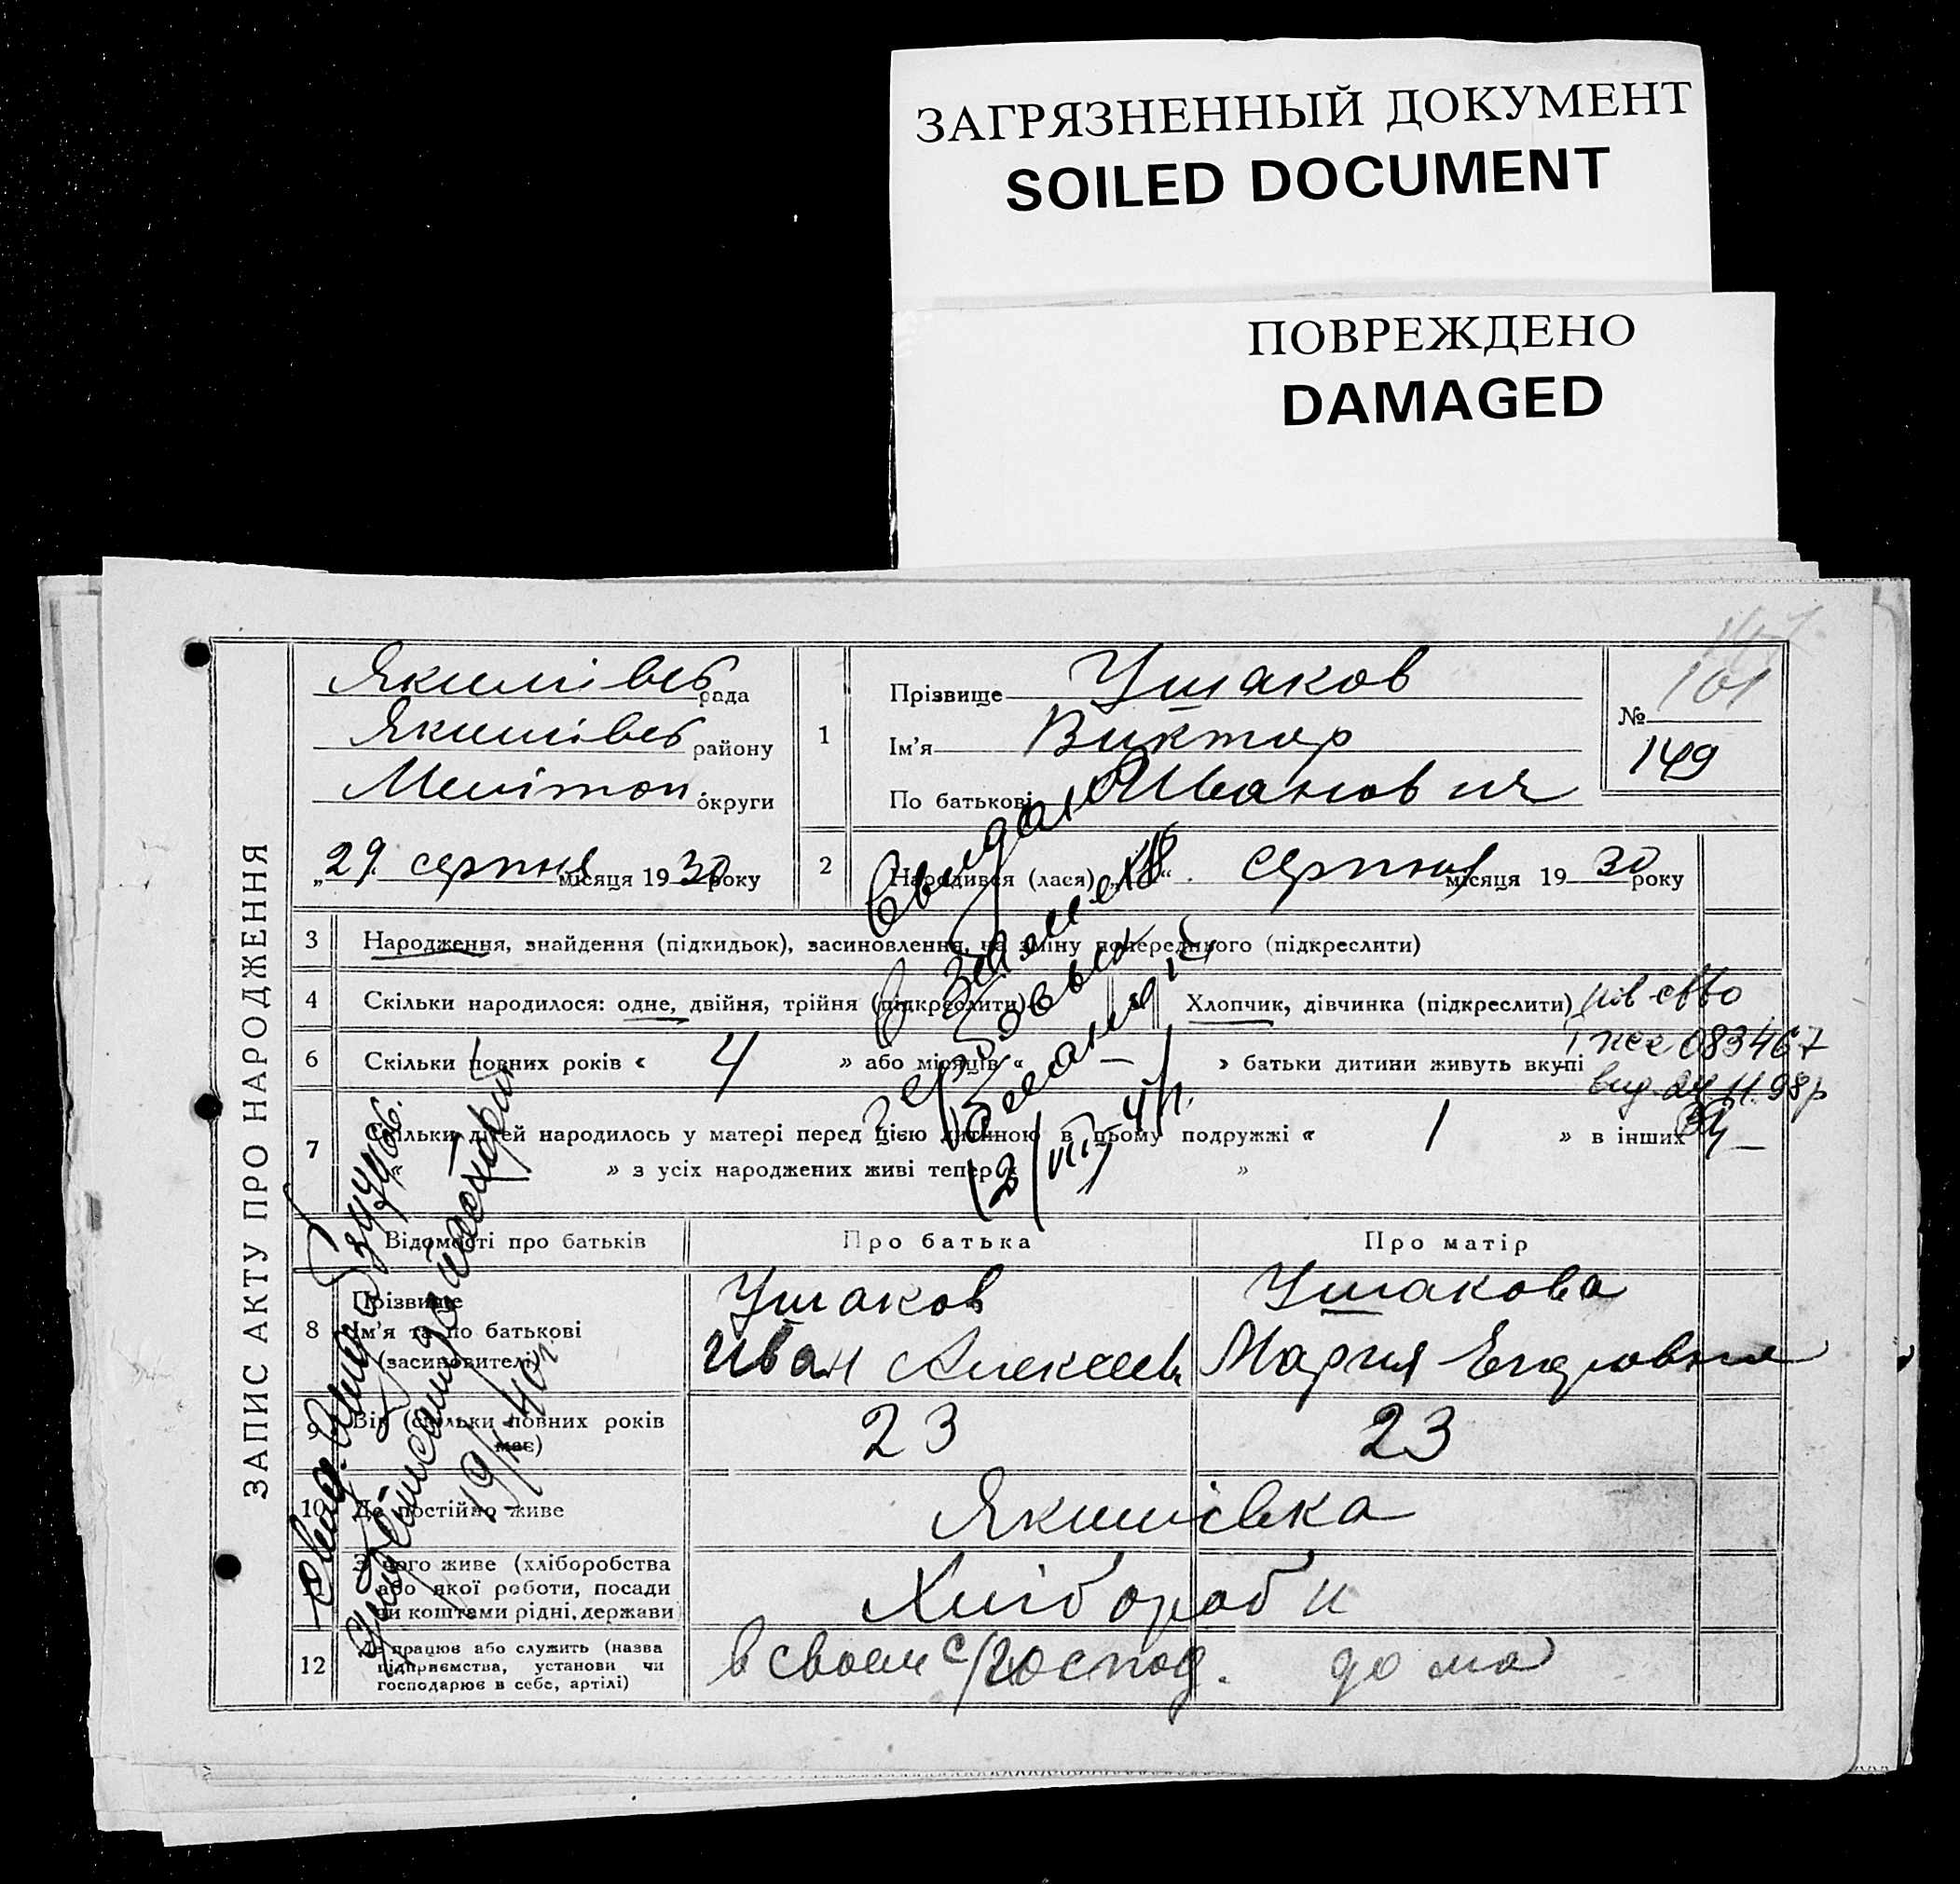 ЗАГРЯЗНЕННЫЙ ДОКУМЕНТ
SOILED DOCUMENT
ПОВРЕЖДЕНО
DAMAGED
ЗАПИС АКТУ ПРО НАРОДЖЕННЯ
Якимівсь рада
Якимівсь району
Меліton. округи
„29. серпня місяця 1930 року
1
Прізвище Ушаков
Ім'я Виктор
По батькові Иванович
№ 101
149
2 Народився (лася) „18“ серпня місяця 1930 року
3 Народження, знайдення (підкидьок), засиновлення, на зміну попереднього (підкреслити)
4 Скільки народилося: одне, двійня, трійня (підкреслити)
Хлопчик, дівчинка (підкреслити)
6 Скільки повних років « 4 » або місяців « — » батьки дитини живуть вкупі
083467
вид 24.11.98р
7 Скільки дітей народилось у матері перед цією дитиною в цьому подружжі « 1 » в інших —
» з усіх народжених живі тепер « »
Відомості про батьків Про батька Про матір
8 Прізвище Ушаков Ушакова
Ім'я та по батькові Иван Алексеев Мария
(засиновителі)
9 Вік (скільки повних років має) 23 23
10 Де постійно живе Якимівка
11 З чого живе (хліборобства
або якої роботи, посади Хлібороби
чи коштами рідні, держави
12 Де працює або служить (назва
підприємства, установи чи в своем с/господ. дома
господарює в себе, артілі)